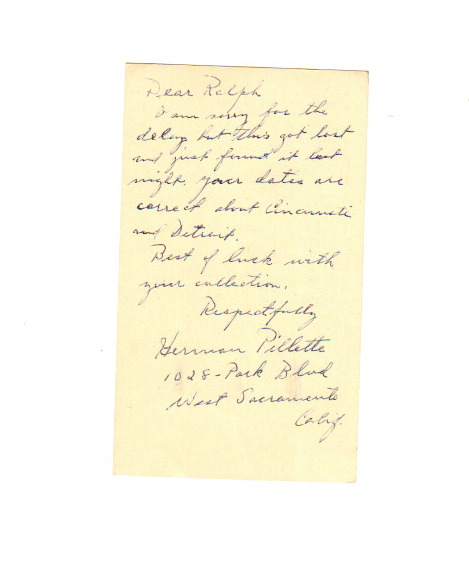 Dear Ralph
I am sorry for the
delay but this got lost
and just found it last
night. your dates are
correct about Cincinnati
and Detroit.
Best of luck with
your collection.
Respectfully
Herman Pillette
1028-Park Blvd
West Sacramento
Calif.